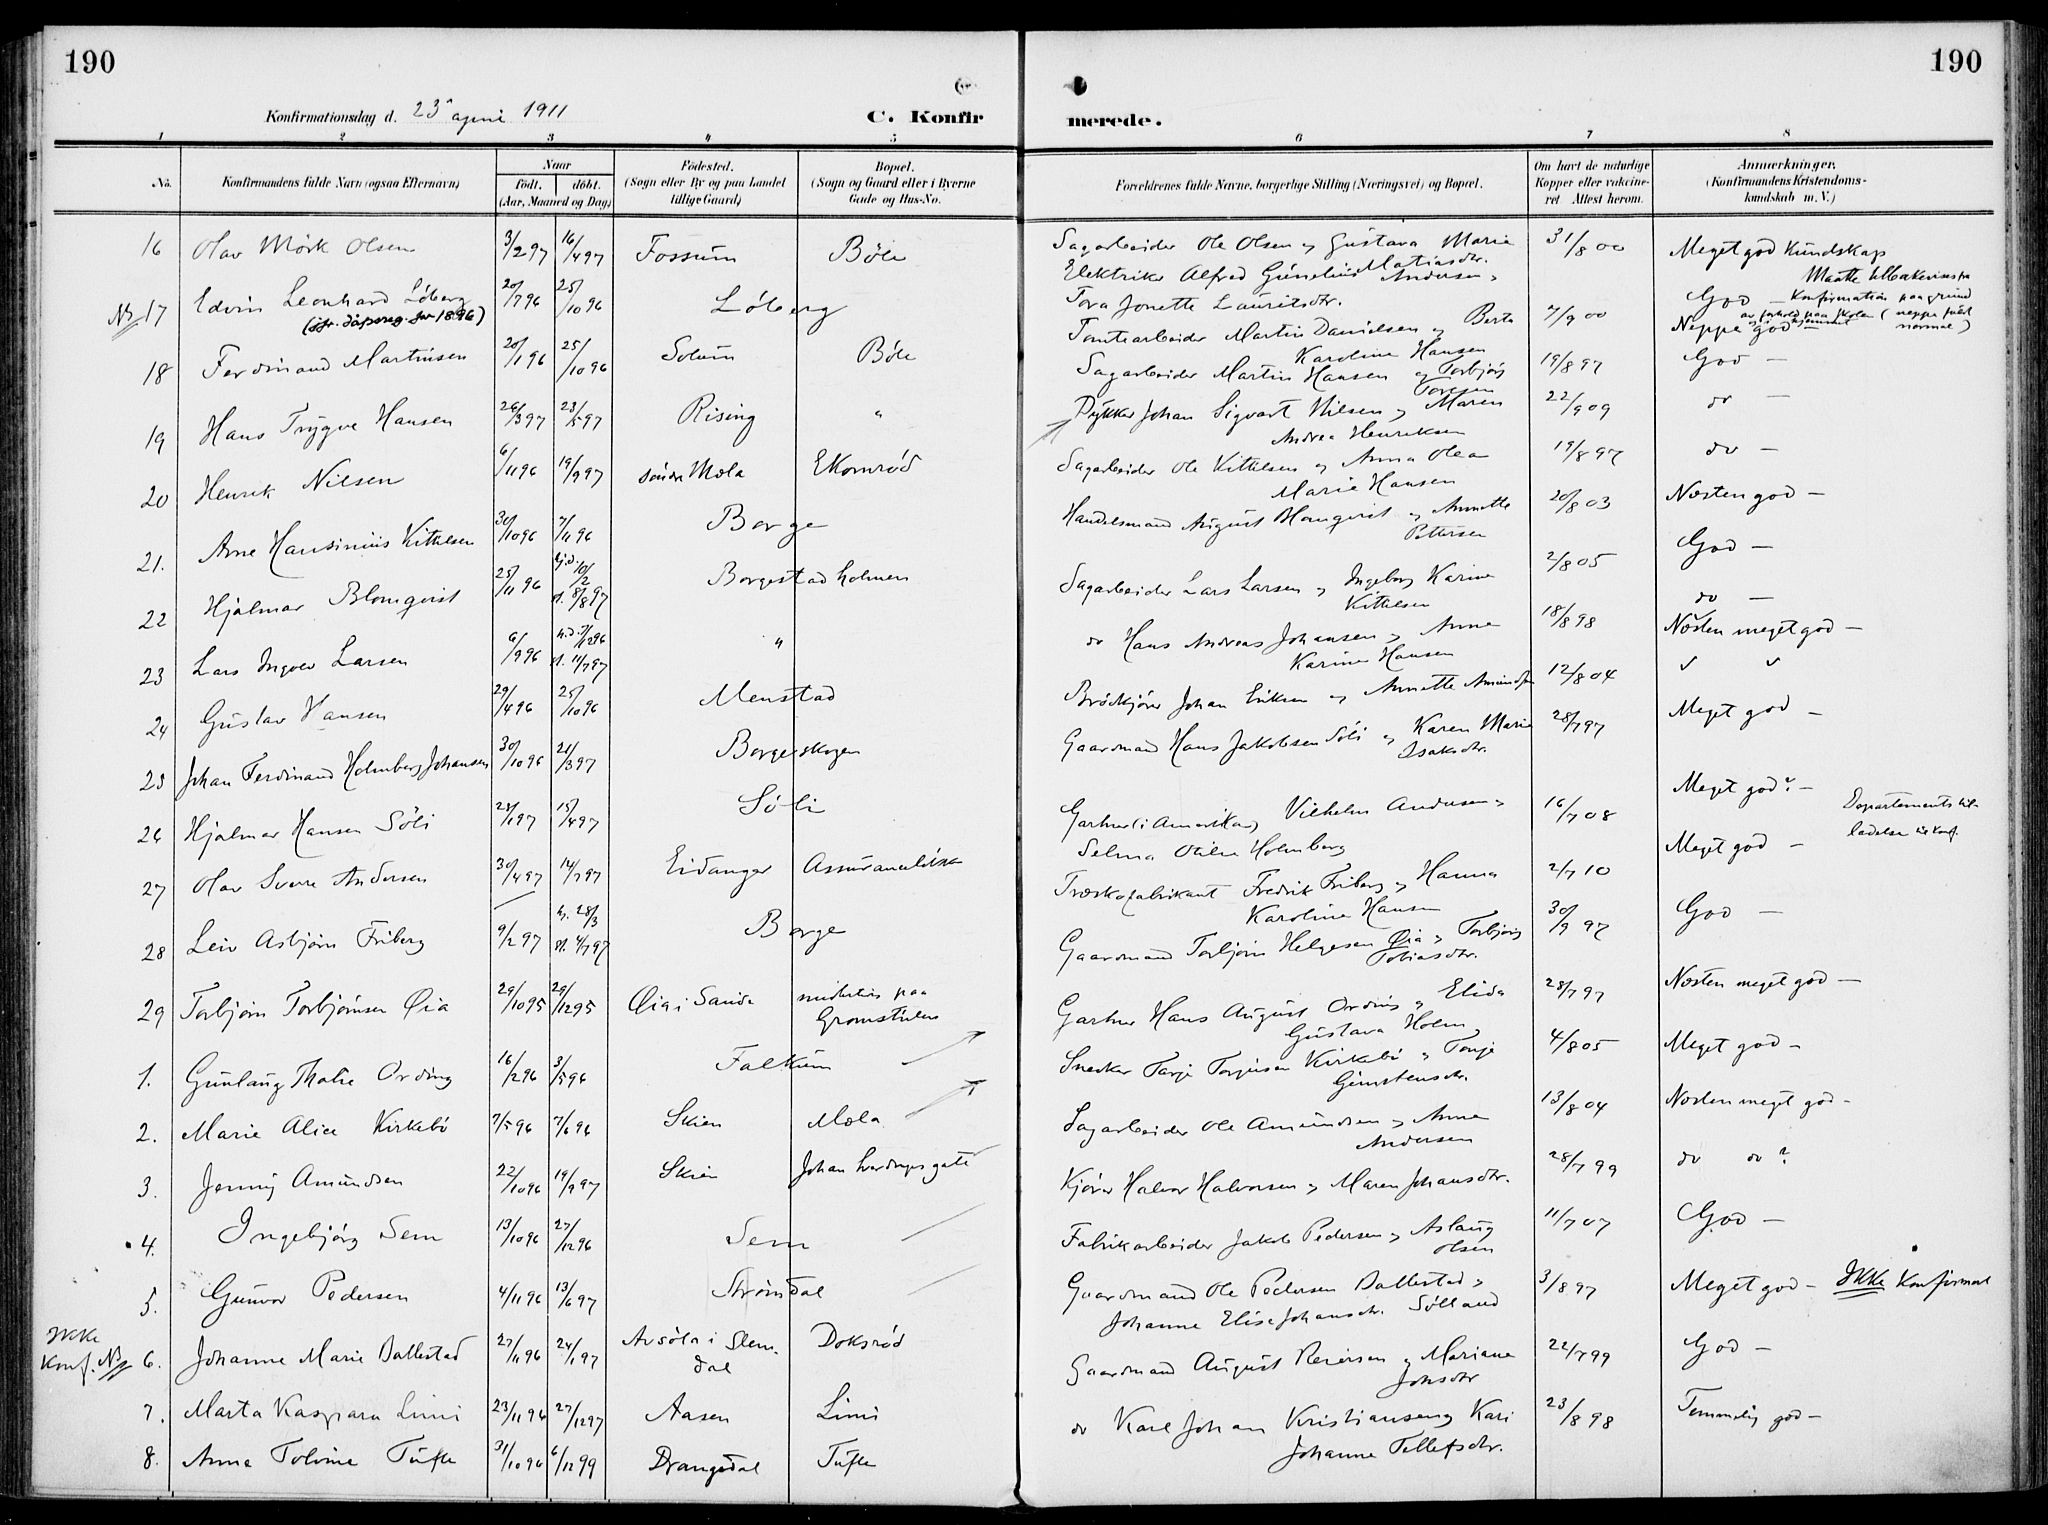 190
Konfirmationsdag d. 23 april 1911
C. Konfir
1 2 3 4 5
No.
Konfirmandens fulde Navn (ogsaa Efternavn)
Naar
födt. döbt.
(Aar, Maaned og Dag)
Födested.
(Sogn eller By og paa Landet
tillige Gaard)
Bopæl.
(Sogn og Gaard eller i Byerne
Gade og Hus-No.
16 Olav Mörk Olsen 3/2 97 16/4 97 Fossum Böle
NB 17 Edvin Leonhard Löberg 20/7 96 25/10 96 Löberg
(jfr. dåpsreg. for 1896)
18 Ferdinand Martinsen 20/1 96 25/10 96 Solum Böle
19 Hans Trygve Hansen 26/3 97 23/5 97 Rising "
20 Henrik Nilsen 6/11 96 19/9 97 söndre Mæla Ekornröd
21. Arne Hansinius Kittilsen 30/10 96 7/11 96 Borge
22 Hjalmar Blomqvist 25/11 96 hj.d. 10/2 st. 8/8 97 Borgestadholmen
23 Lars Ingvev Larsen 6/9 96 h.d. 7/12 96 st. 11/7 97 "
24 Gustav Hansen 29/4 96 25/10 96 Menstad
25 Johan Ferdinand Holmberg Johansen 30/10 96 21/3 97 Borgeskogen
26 Hjalmar Hansen Söli 28/1 97 15/4 97 Söli
27 Olav Sverre Andersen 30/4 97 14/7 97 Eidanger
28 Leiv Asbjørn Friberg 9/2 97 h. 28/3 st. 4/7 97 Borge
29 Torbjørn Torbjørnsen Øia 29/10 95 29/12 95 Øia i Sande midlertidig paa
Gromstulen
1. Gunlaug Thalie Ording 16/2 96 3/5 96 Falkum
2. Marie Alice Kirkebö 7/5 96 7/6 96 Skien Mæla
3. Jenny Amundsen 22/10 96 19/9 97 Skien Johan Sverdrups gate
4. Ingebjörg Sem 13/10 96 27/12 96 Sem
5. Gunvor Pedersen 4/11 96 13/6 97 Strömdal
Ikke
Konf. NB 6. Johanne Marie Ballestad 27/11 96 24/1 97 Avsöla i Slem-
dal Doksröd
7. Marta Kaspara Limi 23/11 96 27/12 97 Aasen Limi
8. Anna Tolvine Tufte 31/10 96 6/12 99 Drangedal Tufte
190
merede.
6 7 8
Forældrenes fulde Navne, borgerlige Stilling (Næringsvei) og Bopæl.
Om havt de naturlige
Kopper eller vakcine-
ret Attest herom.
Anmærkninger.
(Konfirmandens Kristendoms-
kundskab m. V.)
Sagarbeider Ole Olsen og Gustava Marie 31/8 00 Meget god Kundskap
Matiasdtr.
Elektriker Alfred Andersen og
Tora Jonette Lauritsdtr. God — Maatte tilbakevises fra
Konfirmation paa grund
av forhold paa skolen (neppe fuldt
normal)
Tomtearbeider Martin Danielsen og Berta 7/9 00 Neppe god —
Karoline Hansen
Sagarbeider Martin Hansen og Torbjörg 19/8 97 God —
Toresen
Dykker Johan Sigvart Nilsen og Maren 22/9 09 do —
Andrea Henriksen
Sagarbeider Ole Kittilsen og Anna Olea 19/8 97 do —
Marie Hansen
Handelsmand August Blomqvist og Annette 20/8 03 Næsten god —
Pettersen
God —
Sagarbeider Lars Larsen og Ingeborg Karine 2/8 05
Kittilsen do —
do Hans Andreas Johansen og Anne 18/8 98 Næsten meget god —
Karine Hansen
Brödkjører Johan Eriksen og Annette Amundsen 12/8 04
Gaardmand Hans Jakobsen Söli og Karen Marie 28/7 97 Meget god —
Isaksdtr.
Meget god? —
Gartner (i Amerika) Vilhelm Andersen og 16/7 08 Departementstil-
ladelse til Konf.
Selma Otilie Holmberg Meget god —
Træskofabrikant Fredrik Friberg og Hanna 2/7 10
Karoline Hansen God —
Gaardmand Torbjørn Helgesen Øia og Torbjörg 30/9 97
Tobiasdtr.
Næsten meget god —
Gartner Hans August Ording og Elida 28/7 97
Gustava Holm
Snedker Tarje Torjusen Kirkebö og Tonje 4/8 05 Meget god —
Gunstensdtr.
Sagarbeider Ole Amundsen og Anne 13/8 04 Næsten meget god —
Andersen
Kjører Halvor Halvorsen og Maren Johansdtr. 28/7 99 do do?
Fabrikarbeider Jakob Pedersen og Aslaug 11/7 07 God —
Olsen
Gaardmand Ole Pedersen Ballestad og 3/8 97 Meget god — Ikke Konfirmert
Johanne Elise Johansdtr. Sölland
Gaardmand August Reiersen og Mariane 22/7 99 God —
Johsdtr
do Karl Johan Kristiansen og Kari 23/8 98 Temmelig god —
Johanne Tellefsdtr.